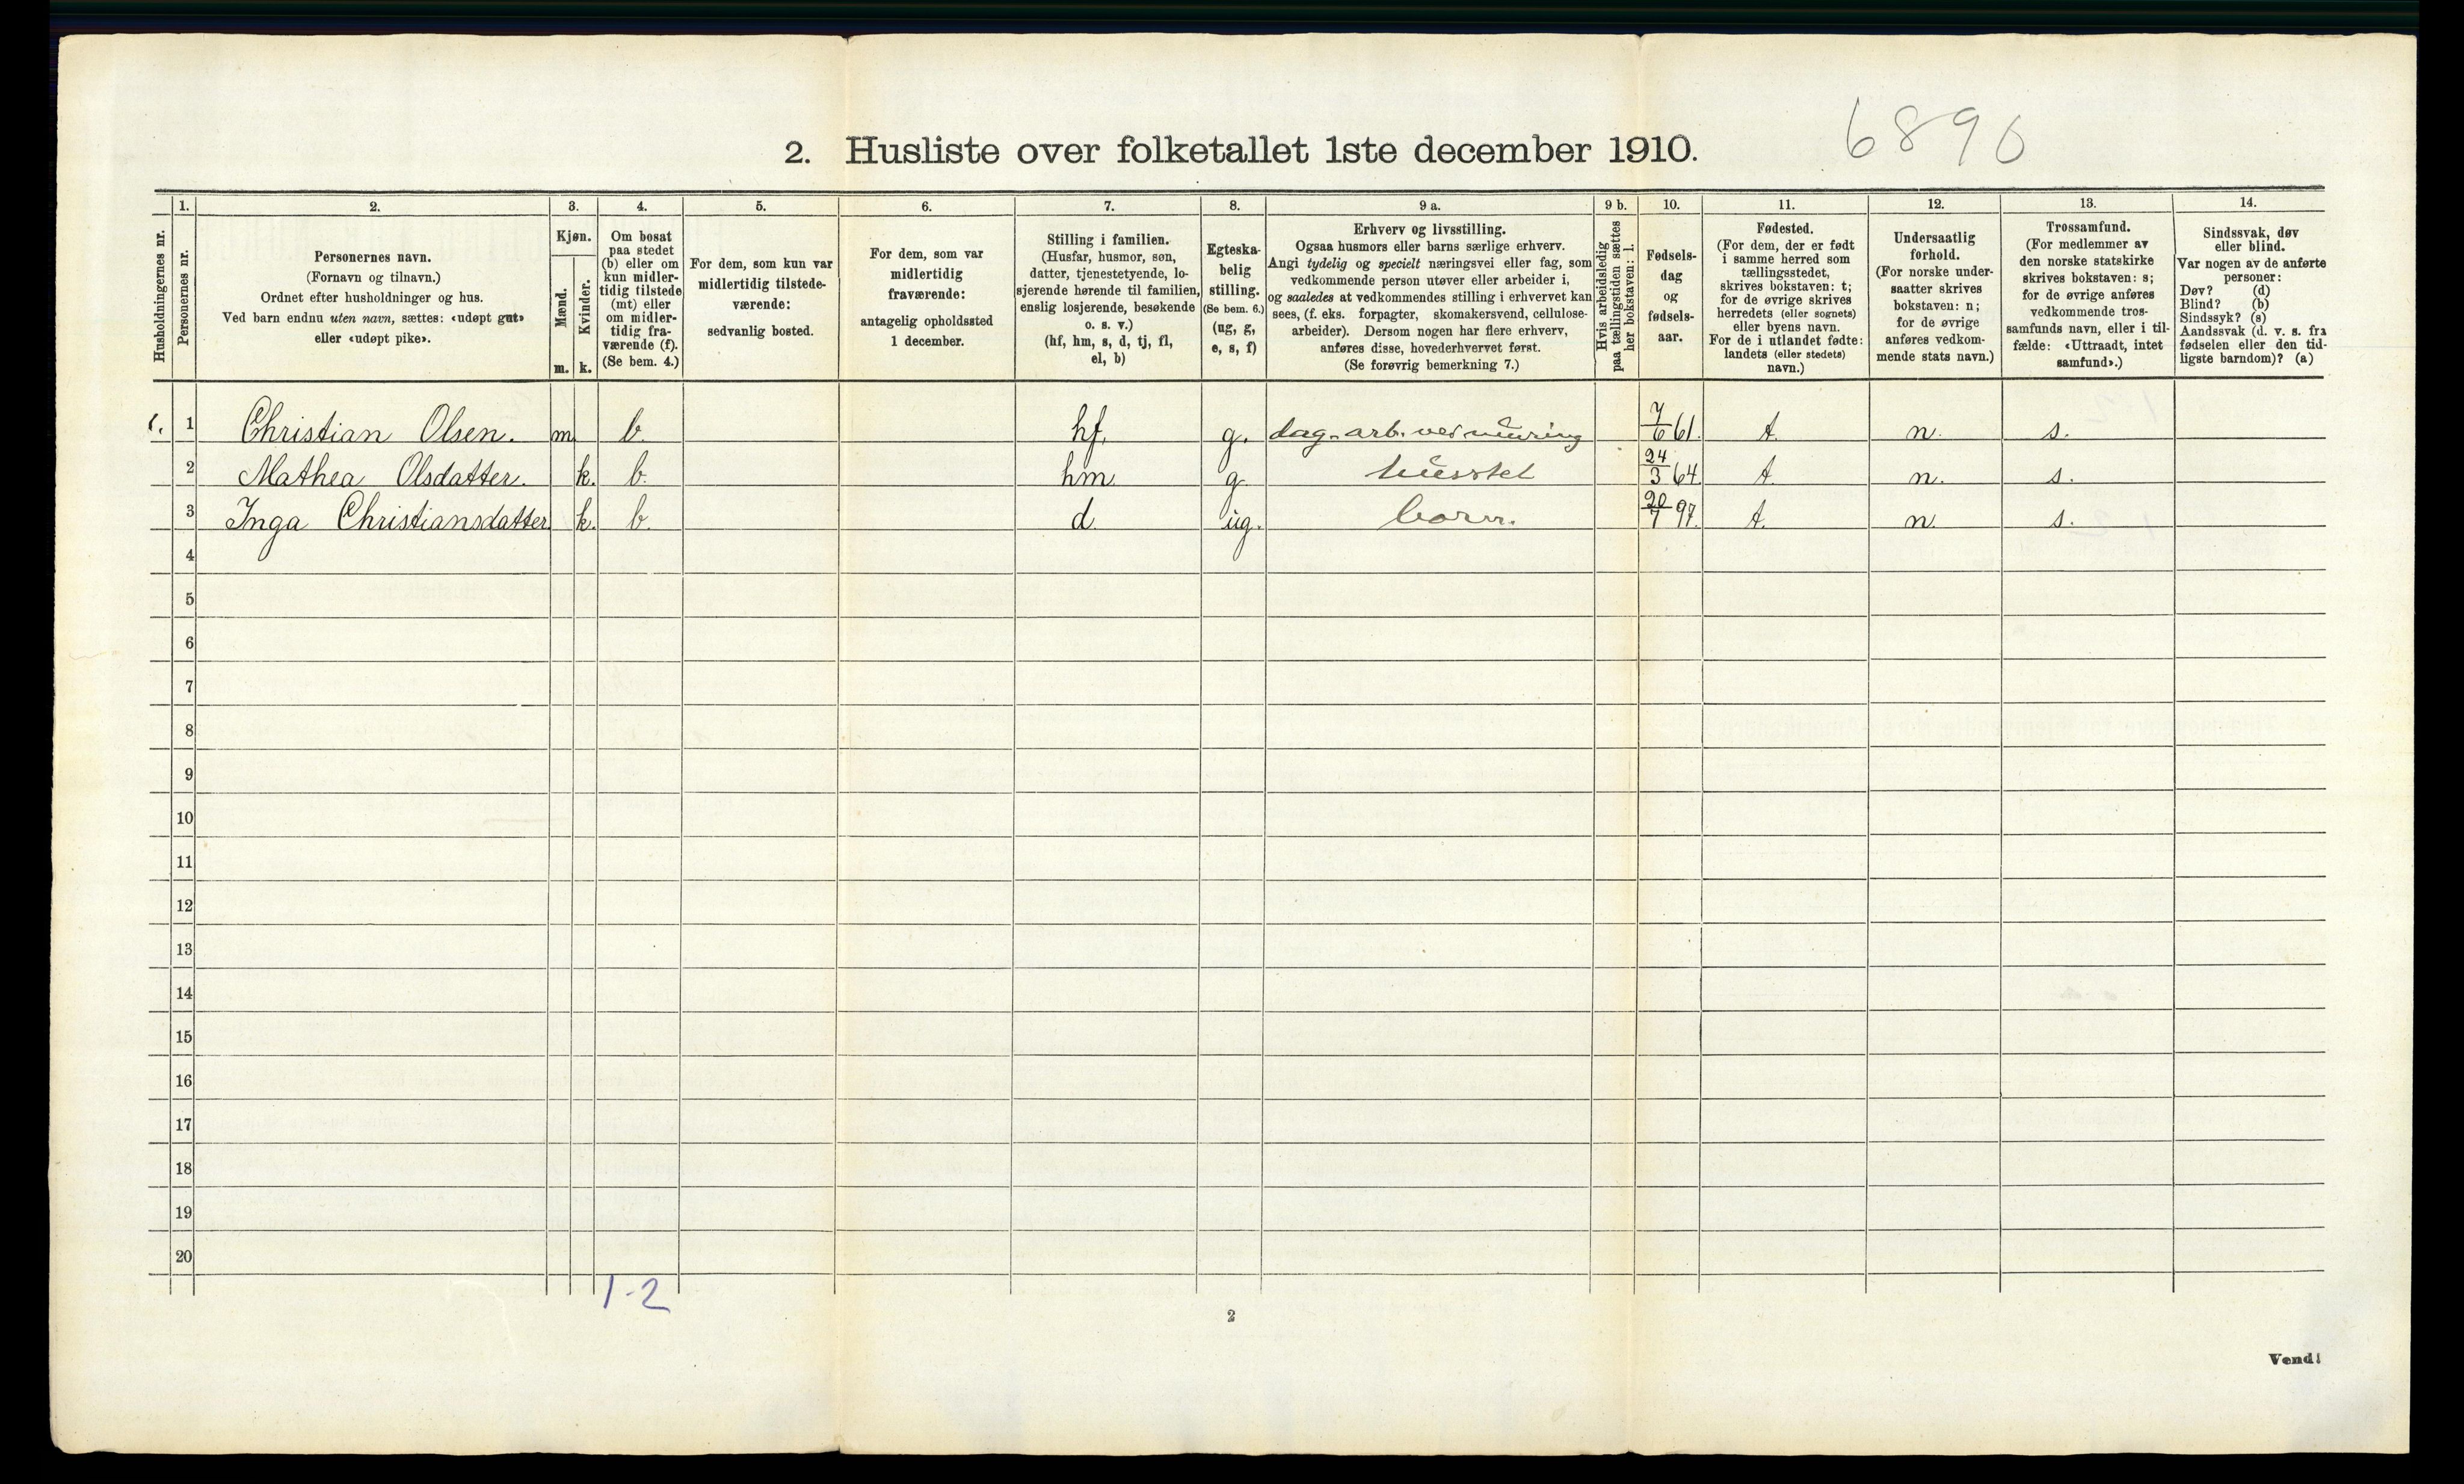 6890
2. Husliste over folketallet 1ste december 1910.
Husholdningernes nr.
1.
Personernes nr.
2.
Personernes navn.
(Fornavn og tilnavn.)
Ordnet efter husholdninger og hus.
Ved barn endnu uten navn, sættes: «udøpt gut»
eller «udøpt pike».
3.
Kjøn.
Mænd.
Kvinder.
m. k.
4.
Om bosat
paa stedet
(b) eller om
kun midler-
tidig tilstede
(mt) eller
om midler-
tidig fra-
værende (f).
(Se bem. 4.)
5.
For dem, som kun var
midlertidig tilstede-
værende:
sedvanlig bosted.
6.
For dem, som var
midlertidig
fraværende:
antagelig opholdssted
1 december.
7.
Stilling i familien.
(Husfar, husmor, søn,
datter, tjenestetyende, lo-
sjerende hørende til familien,
enslig losjerende, besøkende
o. s. v.)
(hf, hm, s, d, tj, fl,
el, b)
8.
Egteska-
belig
stilling.
(Se bem. 6.)
(ug, g,
e, s, f)
9 a.
Erhverv og livsstilling.
Ogsaa husmors eller barns særlige erhverv.
Angi tydelig og specielt næringsvei eller fag, som
vedkommende person utøver eller arbeider i,
og saaledes at vedkommendes stilling i erhvervet kan
sees, (f. eks. forpagter, skomakersvend, cellulose-
arbeider). Dersom nogen har flere erhverv,
anføres disse, hovederhvervet først.
(Se forøvrig bemerkning 7.)
9 b.
Hvis arbeidsledig
paa tællingstiden sættes
her bokstaven: l.
10.
Fødsels-
dag
og
fødsels-
aar.
11.
Fødested.
(For dem, der er født
i samme herred som
tællingsstedet,
skrives bokstaven: t;
for de øvrige skrives
herredets (eller sognets)
eller byens navn.
For de i utlandet fødte:
landets (eller stedets)
navn.)
12.
Undersaatlig
forhold.
(For norske under-
saatter skrives
bokstaven: n;
for de øvrige
anføres vedkom-
mende stats navn.)
13.
Trossamfund.
(For medlemmer av
den norske statskirke
skrives bokstaven: s;
for de øvrige anføres
vedkommende tros-
samfunds navn, eller i til-
fælde: «Uttraadt, intet
samfund».)
14.
Sindssvak, døv
eller blind.
Var nogen av de anførte
personer:
Døv? (d)
Blind? (b)
Sindssyk? (s)
Aandssvak (d. v. s. fra
fødselen eller den tid-
ligste barndom)? (a)
1. 1 Christian Olsen. m. b. hf. g. dag.arb. ved muring 7/6 61. t. n. s.
2 Mathea Olsdatter. k. b. hm g. husstel 24/3 64. t. n. s.
3 Inga Christiansdatter k. b. d. ug. barn. 20/7 97. t. n. s.
4
5
6
7
8
9
10
11
12
13
14
15
16
17
18
19
20
1-2
2
Vend!